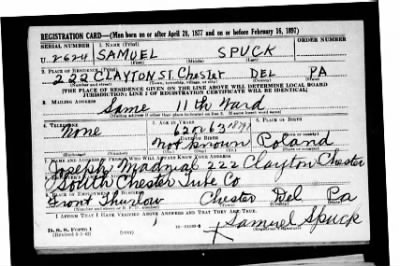 REGISTRATION CARD—(Men born on or after April 28, 1877 and on or before February 16, 1897)
SERIAL NUMBER 1. NAME (Print) ORDER NUMBER
U 2624 SAMUEL SPUCK
(First) (Middle) (Last)
2. PLACE OF RESIDENCE (Print)
222 CLAYTON ST. Chester DEL PA
(Number and street) (Town, township, village, or city) (County) (State)
[THE PLACE OF RESIDENCE GIVEN ON THE LINE ABOVE WILL DETERMINE LOCAL BOARD
JURISDICTION; LINE 2 OF REGISTRATION CERTIFICATE WILL BE IDENTICAL]
3. MAILING ADDRESS
Same 11th Ward
4. TELEPHONE 5. AGE IN YEARS 6. PLACE OF BIRTH
None 62 or 63
DATE OF BIRTH
Not known Poland
7. NAME AND ADDRESS OF PERSON WHO WILL ALWAYS KNOW YOUR ADDRESS
Joseph Madnial 222 Clayton Chester
South Chester Tube Co
Front Thurlow Chester Del Pa
I AFFIRM THAT I HAVE VERIFIED ABOVE ANSWERS AND THAT THEY ARE TRUE.
D. S. S. FORM 1
(Revised 4-1-42) (over)
X Samuel Spuck